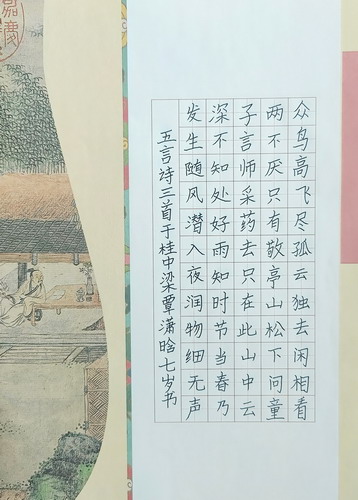 众鸟高飞尽孤云独去闲相看
两不厌只有敬亭山松下问童
子言师采药去只在此山中云
深不知处好雨知时节当春乃
发生随风潜入夜润物细无声
五言诗三首于桂中梁覃潇晗七岁书
嘉慶